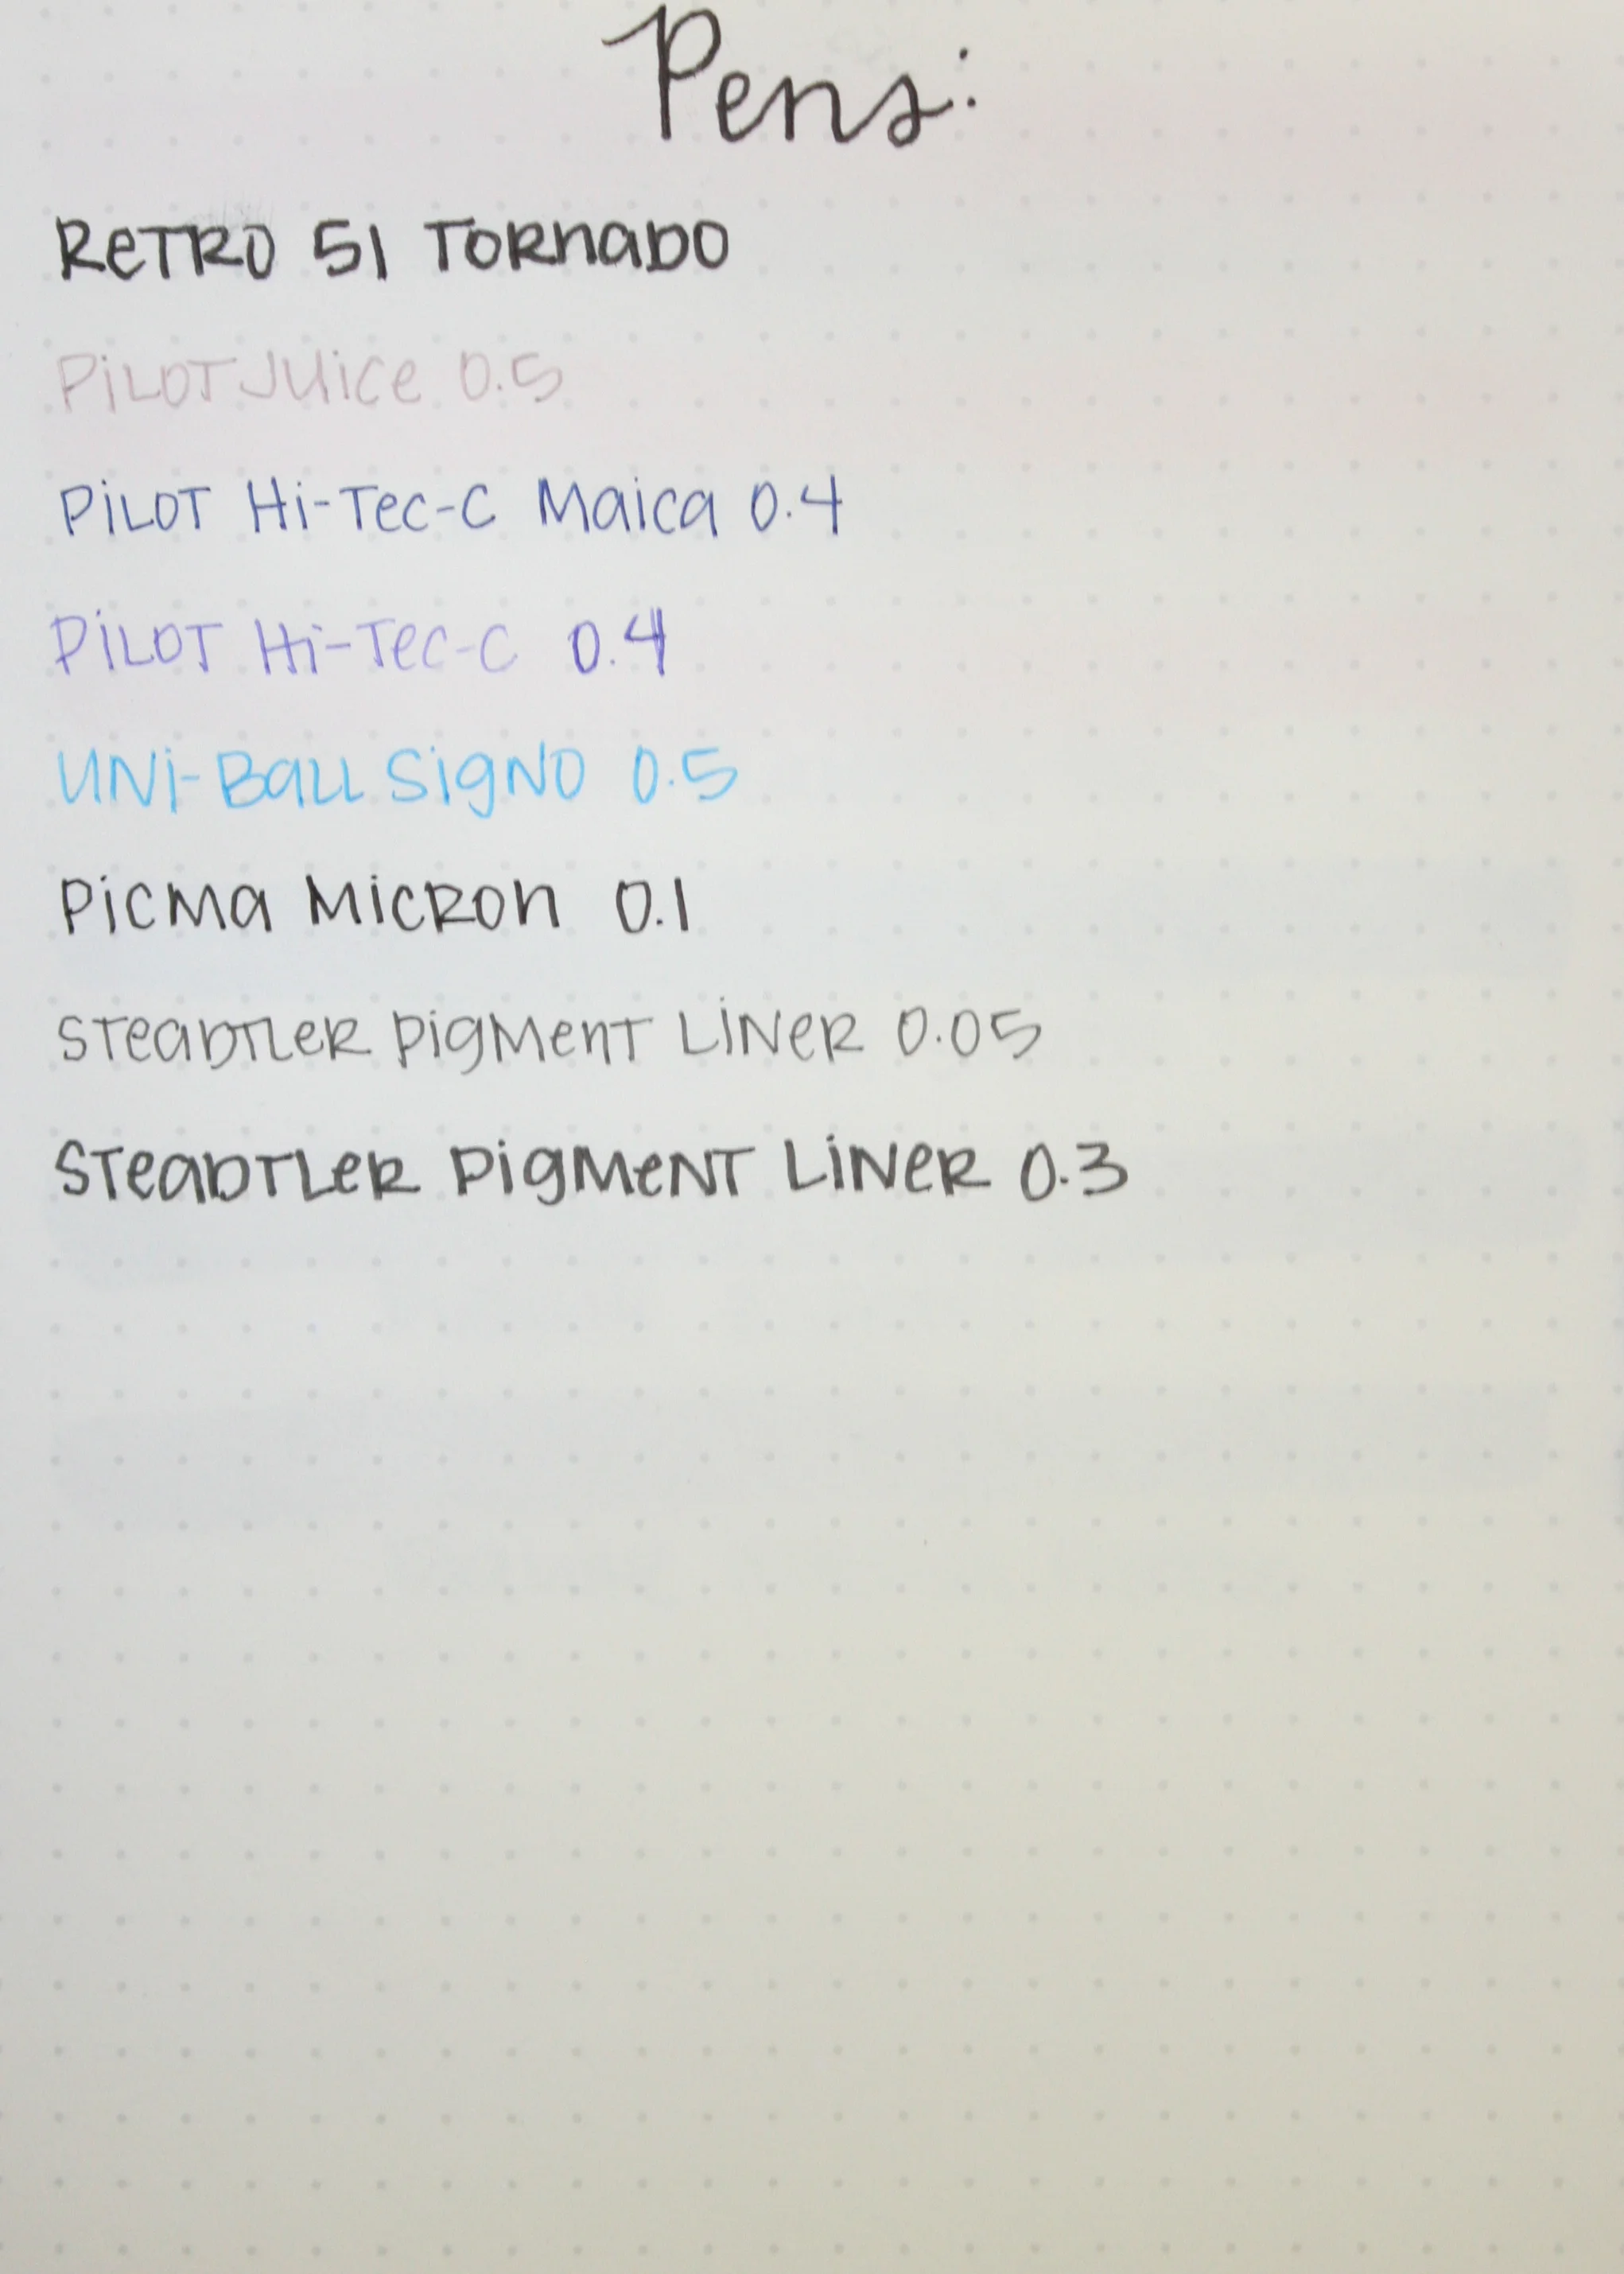 Pens:
RETRO 51 TORNADO
PILOT JUICE 0.5
PILOT Hi-Tec-C Maica 0.4
PILOT Hi-Tec-C 0.4
UNI-BALL SIGNO 0.5
PICMA MICRON 0.1
STEADTLER PIGMENT LINER 0.05
STEADTLER PIGMENT LINER 0.3